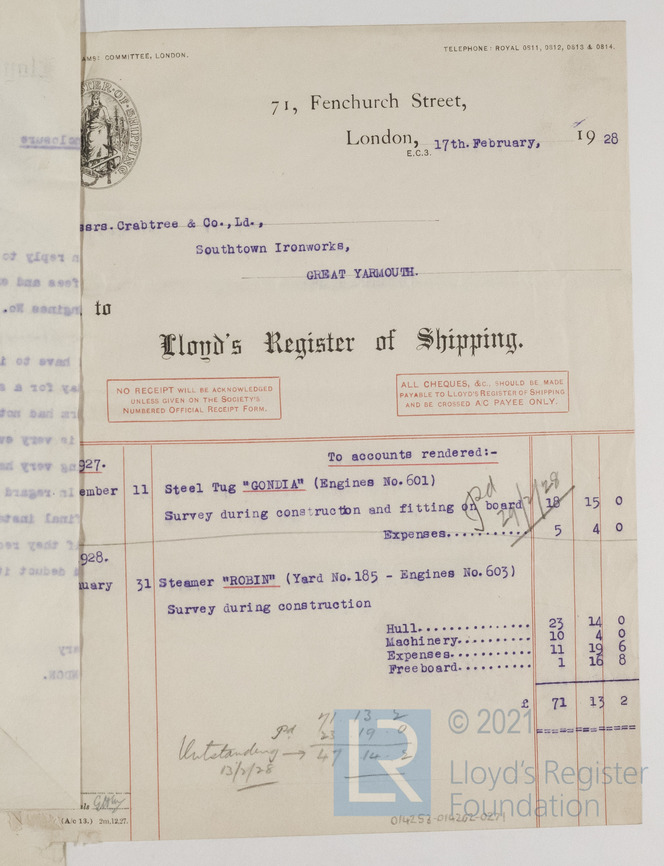 AMS: COMMITTEE, LONDON.
TELEPHONE: ROYAL 0811, 0812, 0813 & 0814.
71, Fenchurch Street,
London, 17th. February, 19 28
E.C.3.
ssrs. Crabtree & Co., Ld.,
Southtown Ironworks,
GREAT YARMOUTH.
to
Lloyd's Register of Shipping.
NO RECEIPT WILL BE ACKNOWLEDGED
UNLESS GIVEN ON THE SOCIETY'S
NUMBERED OFFICIAL RECEIPT FORM.
ALL CHEQUES, &c., SHOULD BE MADE
PAYABLE TO LLOYD'S REGISTER OF SHIPPING
AND BE CROSSED A/C PAYEE ONLY.
927. To accounts rendered:-
ember 11 Steel Tug "GONDIA" (Engines No.601)
Survey during construction and fitting on board 18 15 0
Pd 21/2/28
Expenses.......... 5 4 0
928.
uary 31 Steamer "ROBIN" (Yard No.185 - Engines No.603)
Survey during construction
Hull............... 23 14 0
Machinery.......... 10 4 0
Expenses........... 11 19 6
Freeboard.......... 1 16 8
£ 71 13 2
71 13 2
Pd 23 19 0
Outstanding → 47 14 2
13/2/28
(A/c 13.) 2m.12.27.
LR
© 2021
Lloyd's Register
Foundation
014253-014262-0271